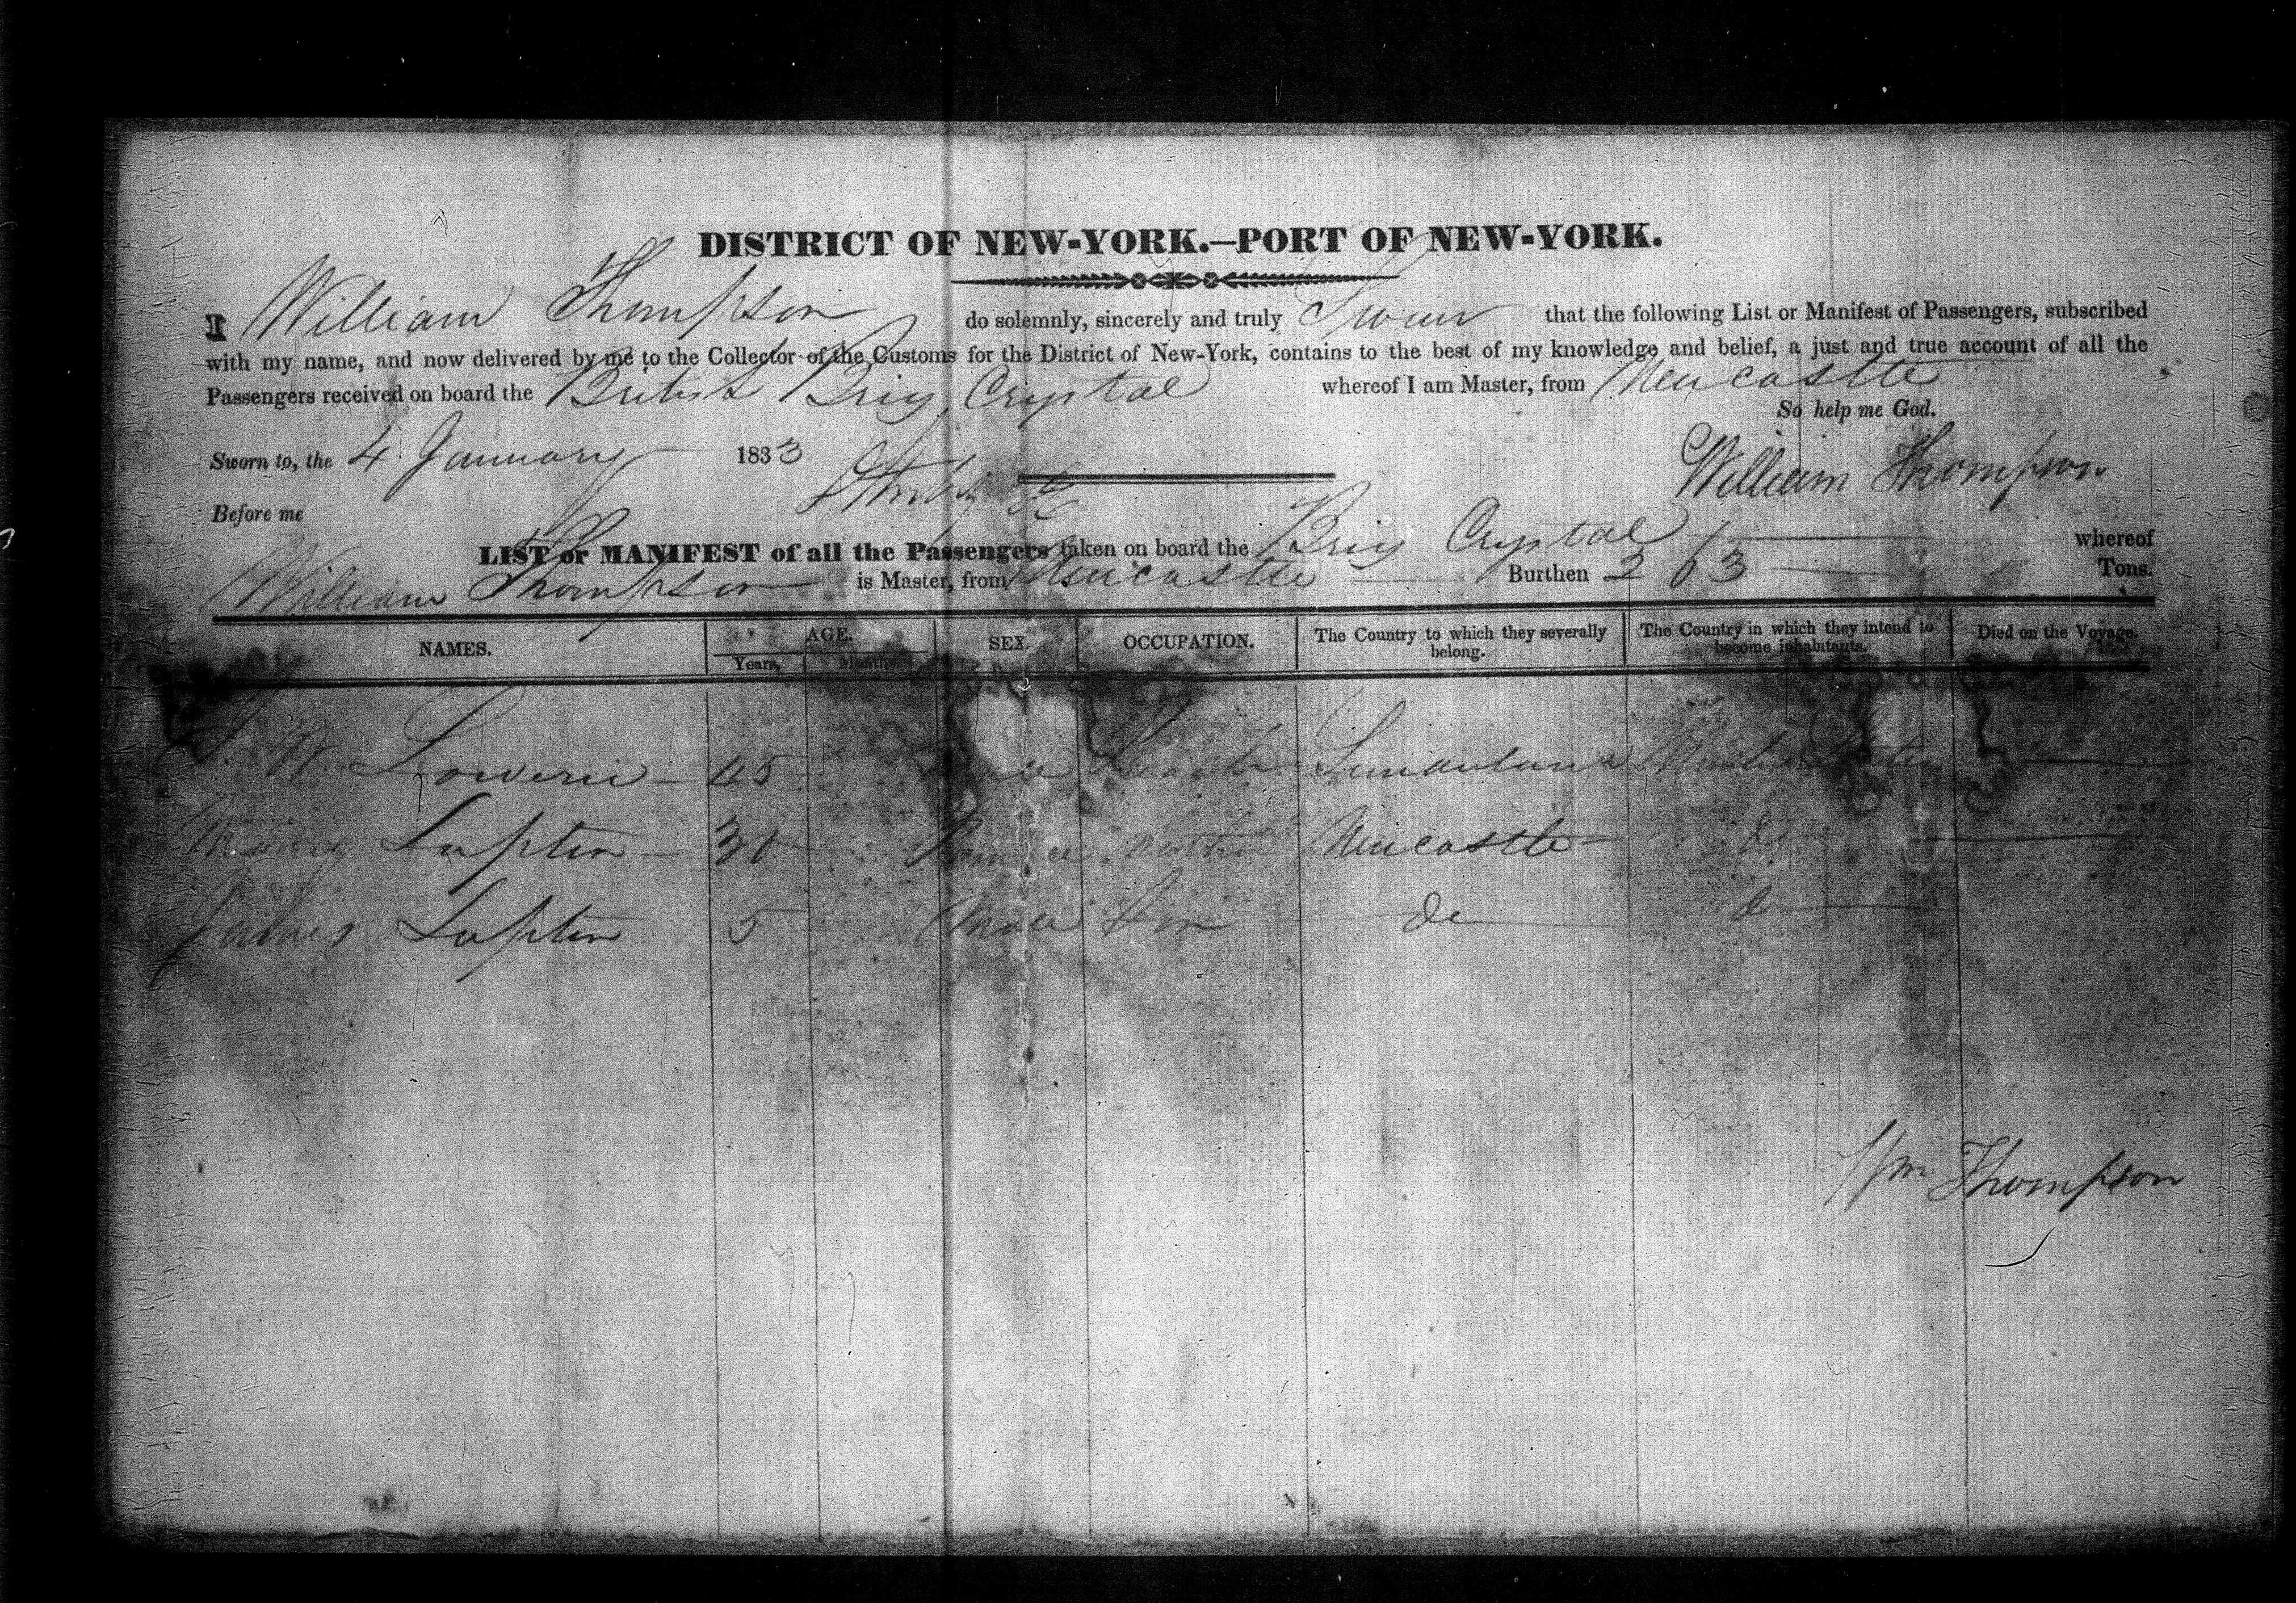 DISTRICT OF NEW-YORK.—PORT OF NEW-YORK.
I William Thompson do solemnly, sincerely and truly Swear that the following List or Manifest of Passengers, subscribed
with my name, and now delivered by me to the Collector of the Customs for the District of New-York, contains to the best of my knowledge and belief, a just and true account of all the
Passengers received on board the British Brig Crystal whereof I am Master, from Newcastle
So help me God.
Sworn to, the 4 January 1833 William Thompson
Before me
LIST or MANIFEST of all the Passengers taken on board the Brig Crystal whereof
William Thompson is Master, from Newcastle Burthen 263 Tons.
NAMES. AGE. SEX. OCCUPATION. The Country to which they severally belong. The Country in which they intend to become inhabitants. Died on the Voyage.
Years. Months.
45
Mary Lupton 30 Newcastle do
James Lupton 5 Male Son do do
Wm Thompson